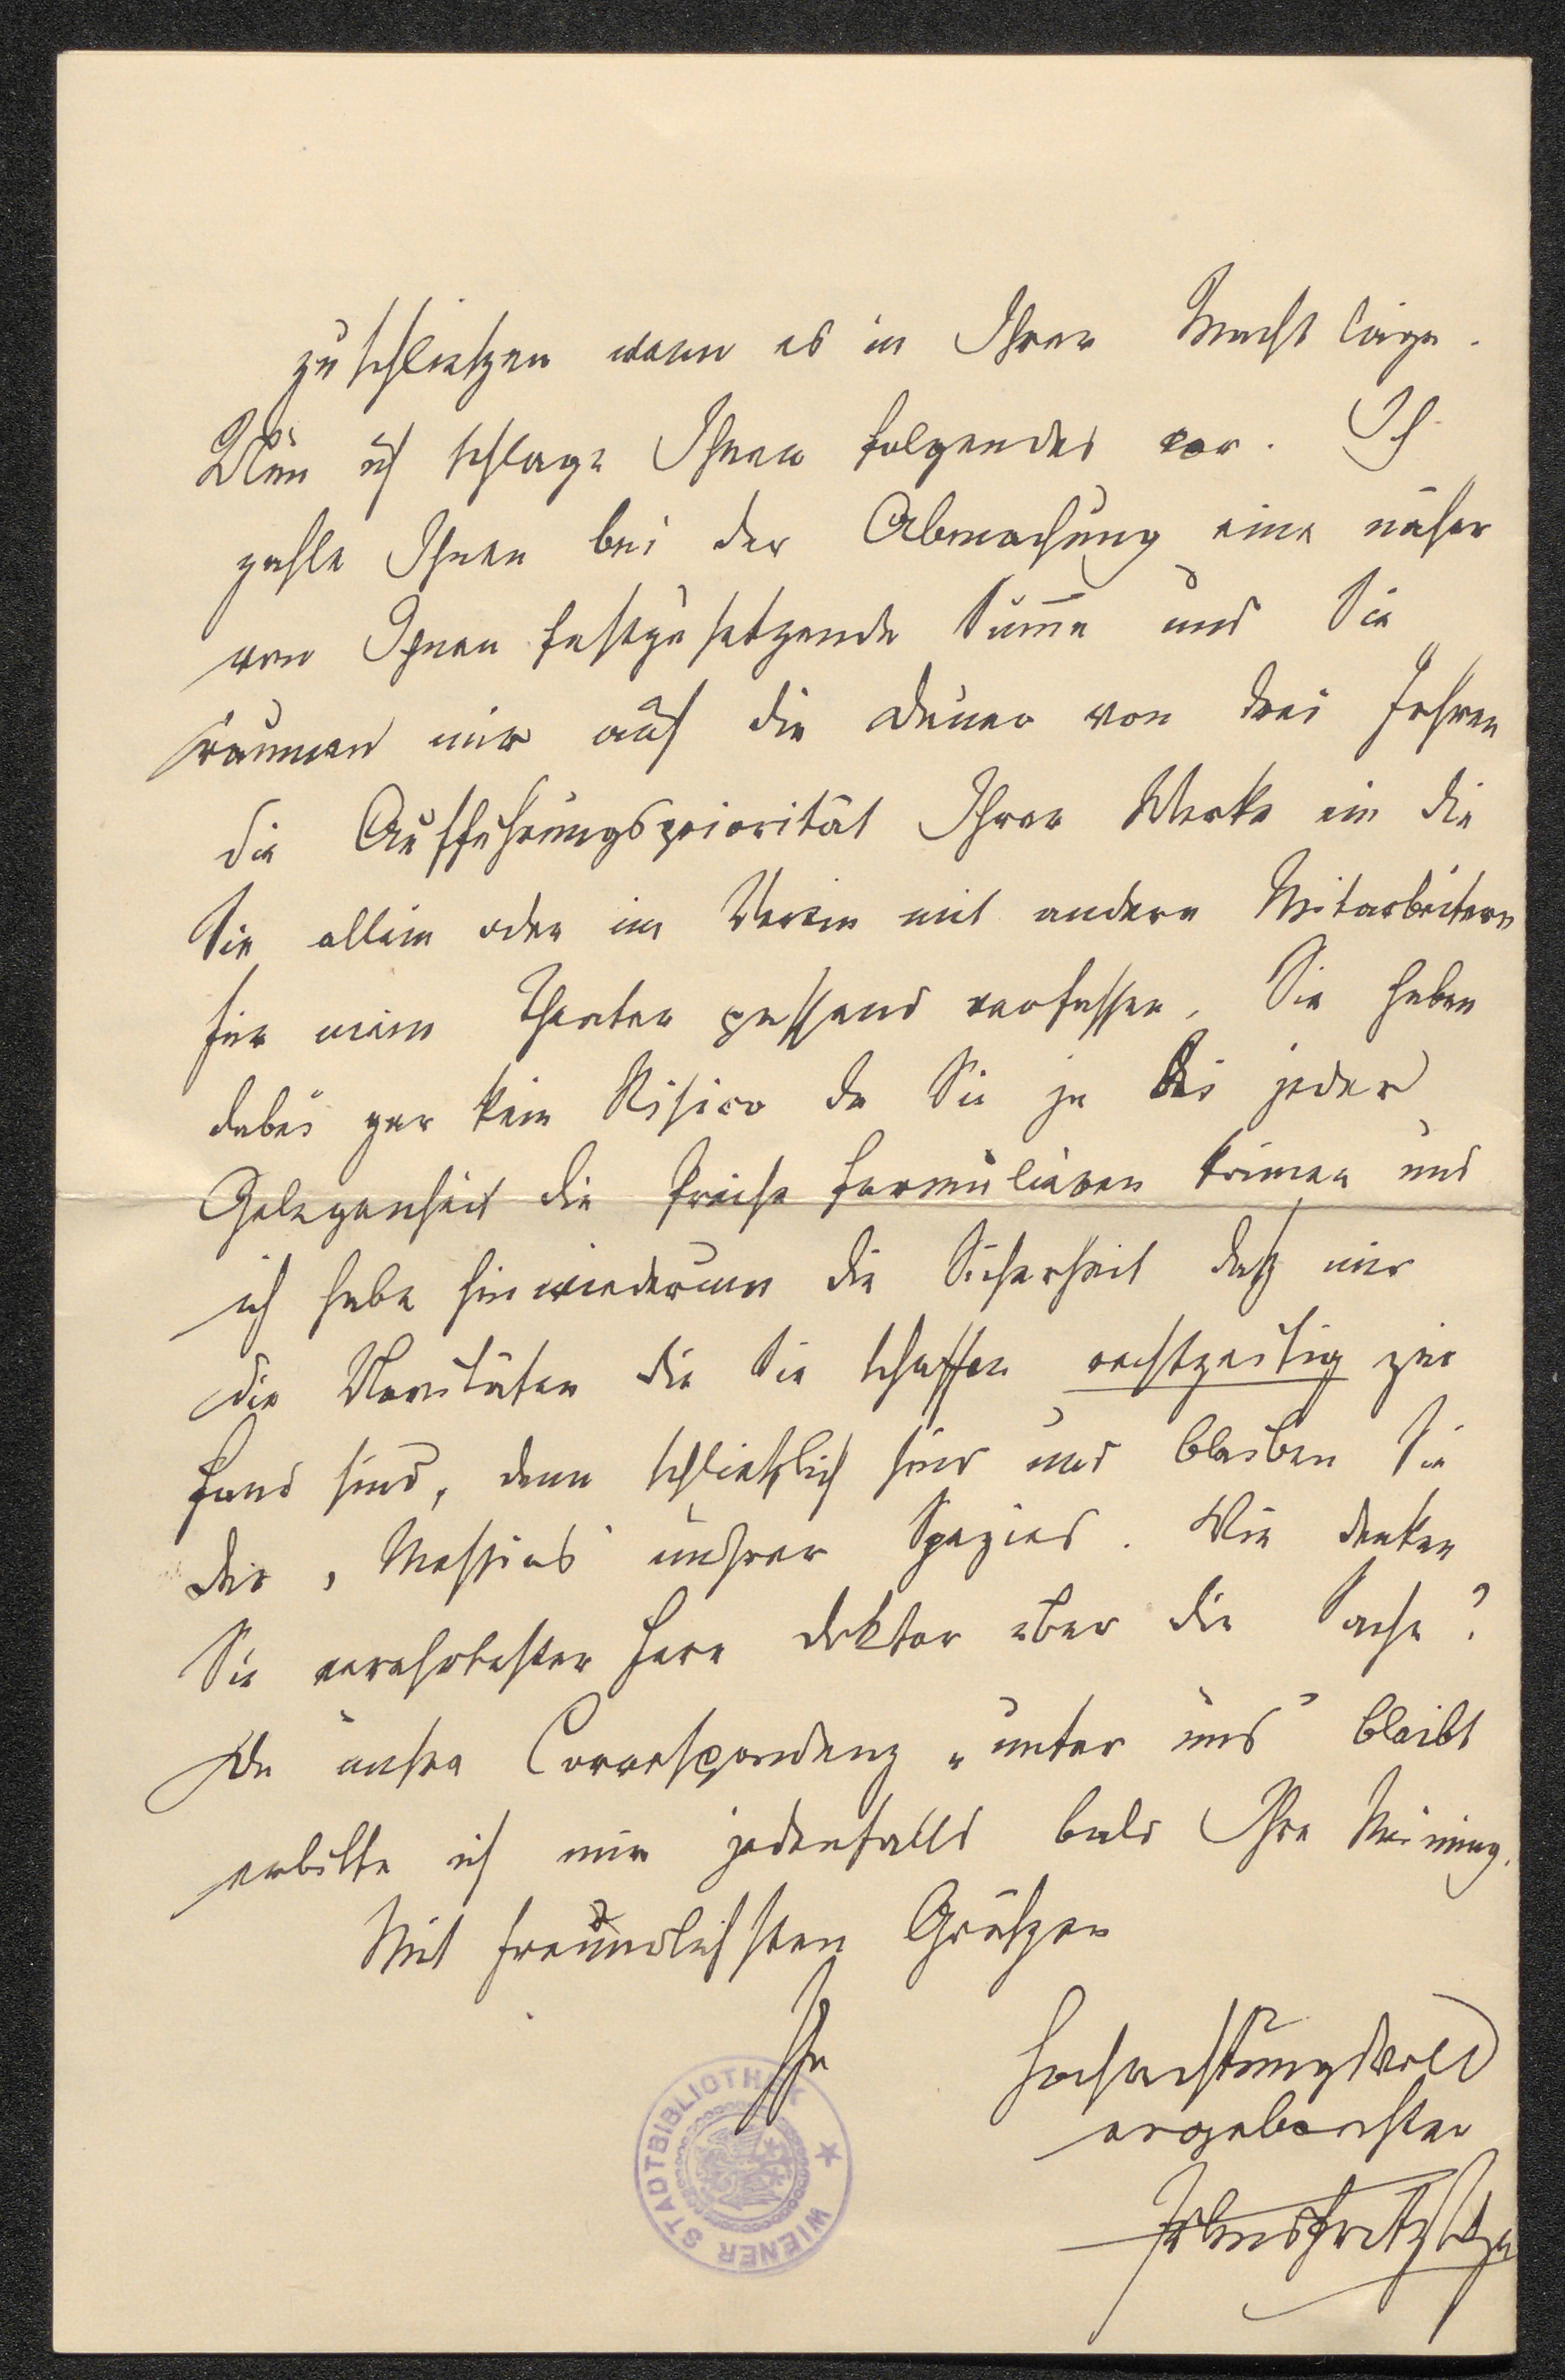 zuschließen wenn es in Ihrer Macht läge.
Nun ich schlage Ihnen folgendes vor. Ich
zahle Ihnen bei der Abmachung eine näher
von Ihnen festzusetzende Summe und Sie
räumen mir auf die Dauer von drei Jahren
die Aufführungspriorität Ihrer Werke ein die
Sie allein oder im Verein mit andern Mitarbeitern
für mein Theater passend verfassen. Sie haben
dabei gar kein Risico da Sie ja bei jeder
Gelegenheit die Preise formulieren können und
ich habe hinwiederum die Sicherheit daß mir
die Novitäten die Sie schaffen rechtzeitig zur
Hand sind, denn schließlich sind und bleiben Sie
der „Messias" unsrer Spezies. Wie denken
Sie verehrtester Herr Doktor über die Sache?
Da unsre Correspondenz „unter uns" bleibt
erbitte ich mir jedenfalls bald Ihre Meinung.
Mit freundlichsten Grüßen
Ihr hochachtungsvoll
ergebenster
WIENER STADTBIBLIOTHEK